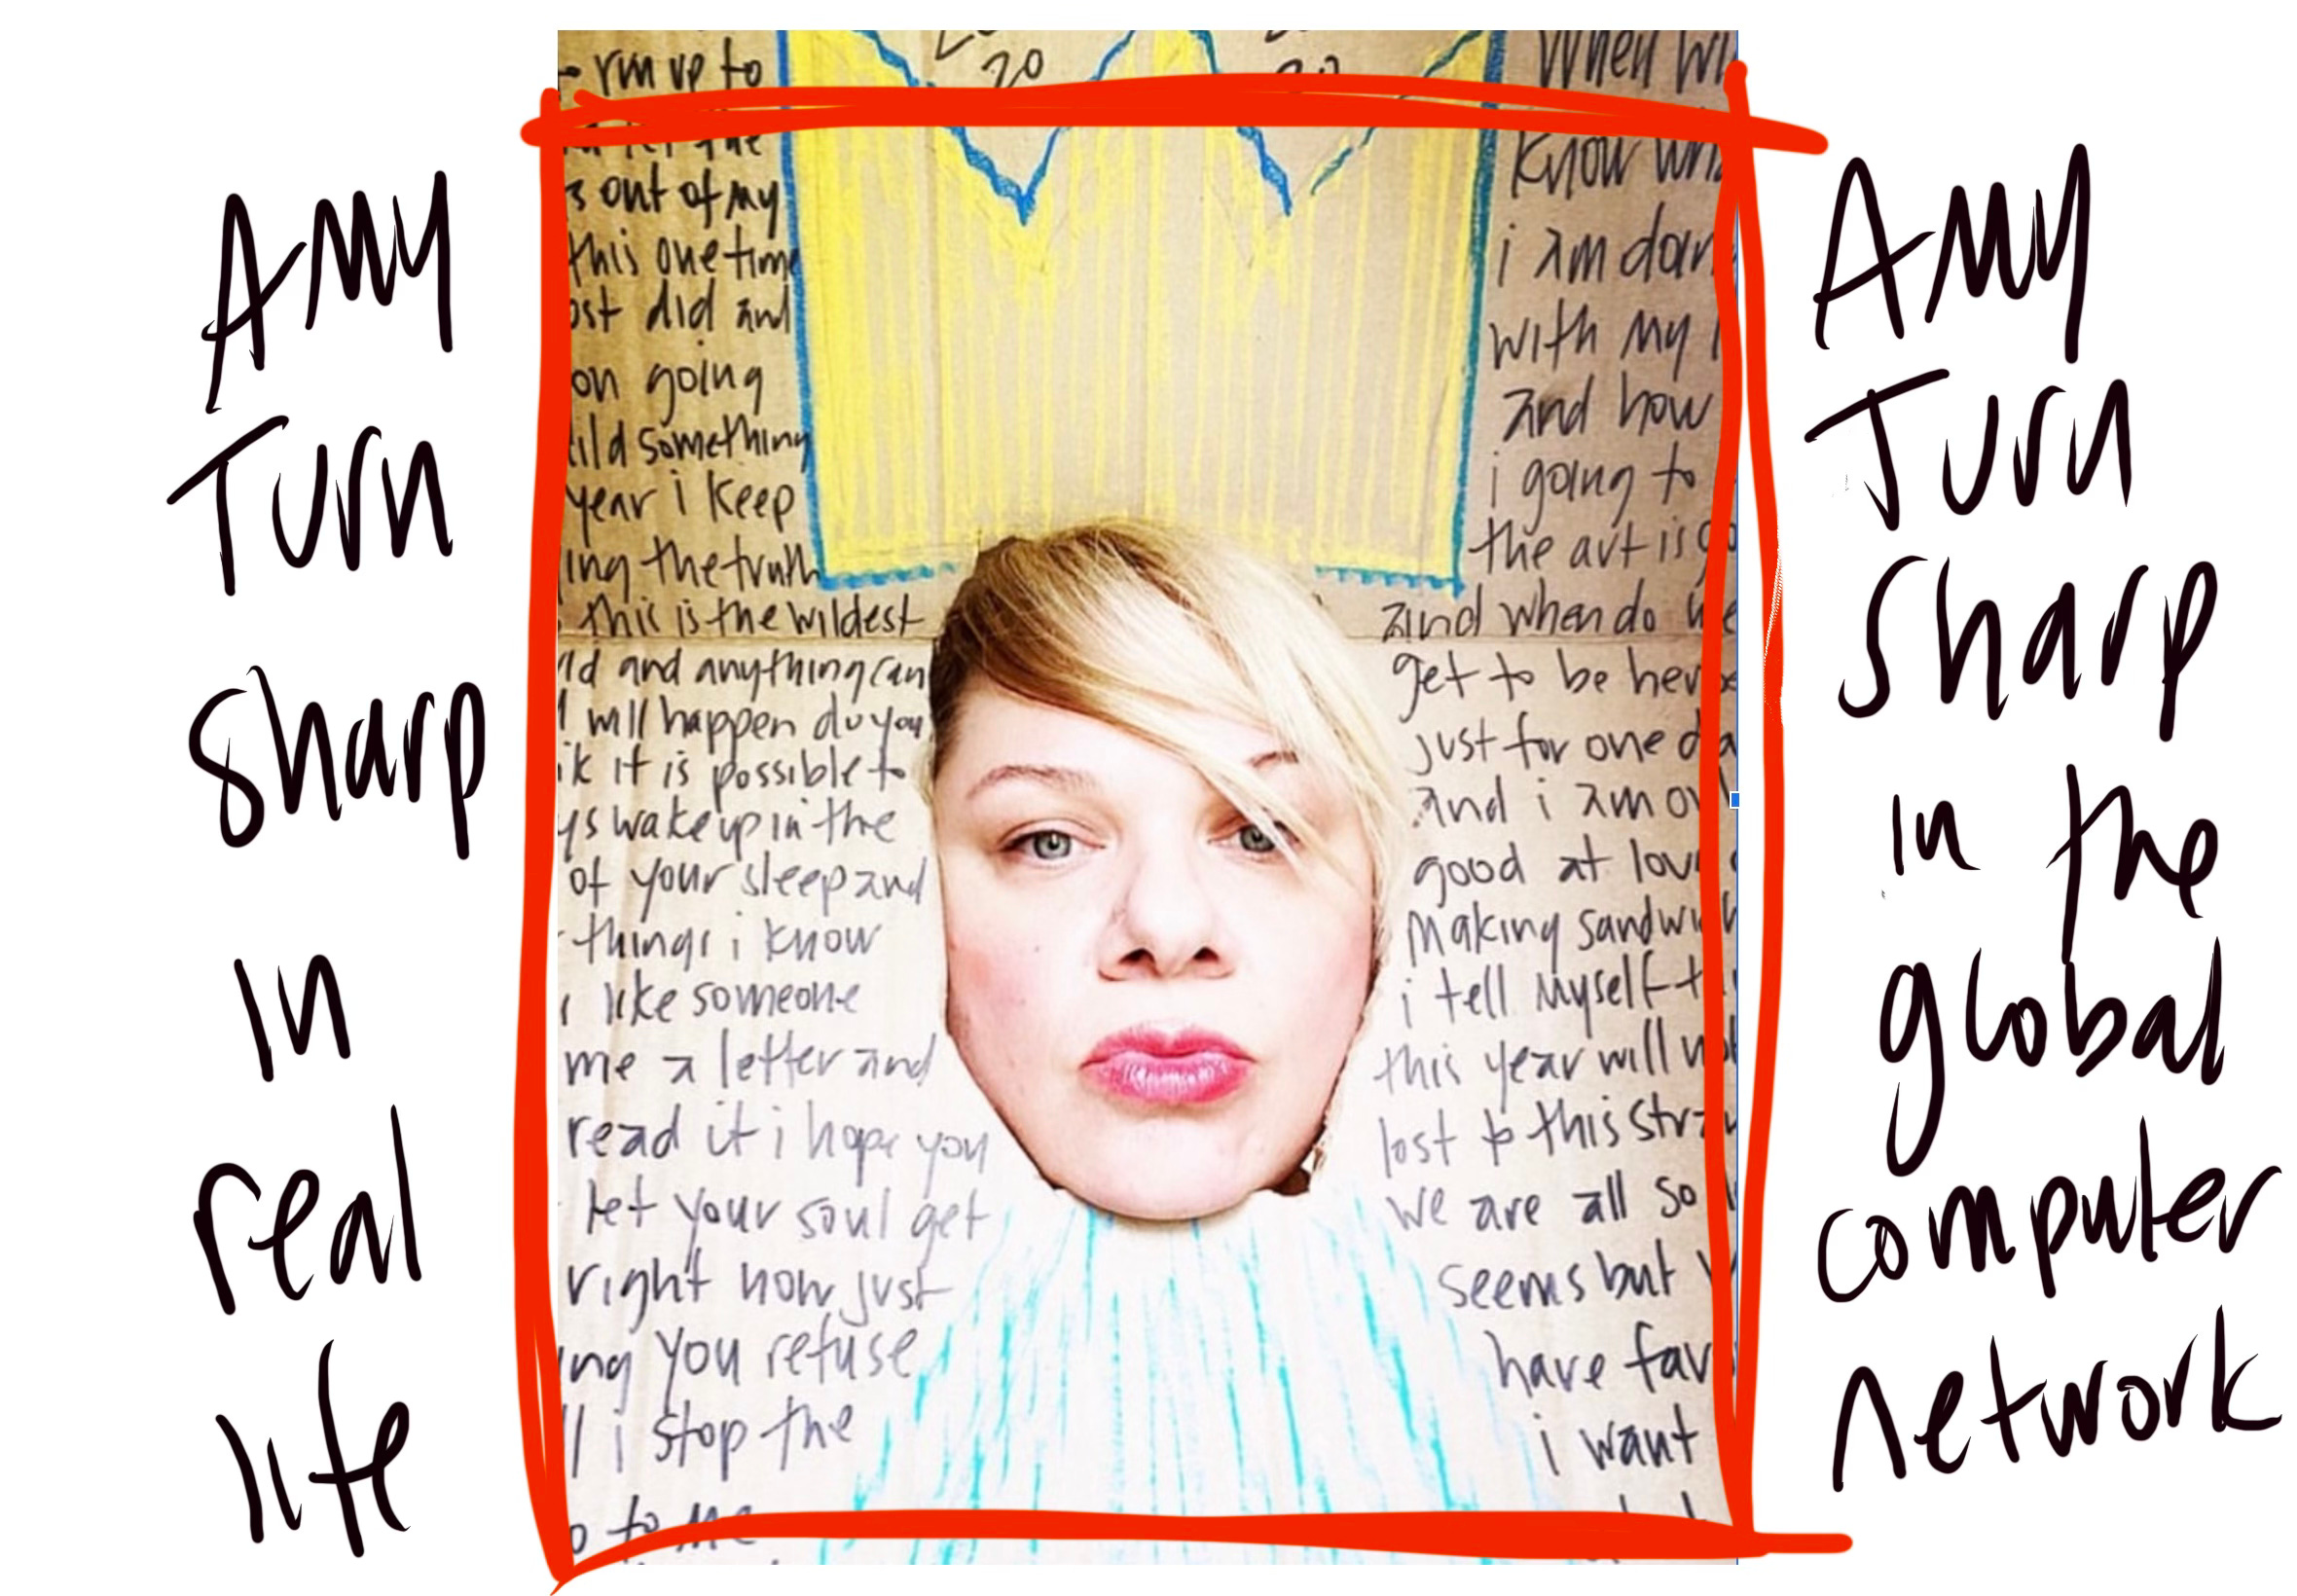 Amy
Turn
sharp
in
real
life
run up to
20
20
the
s out of my
this one time
ost did and
on going
ild something
year i keep
ing the truth
this is the wildest
ld and anything can
will happen do you
ik it is possible to
ys wake up in the
of your sleep and
things i know
like someone
me a letter and
read it i hope you
let your soul get
right now just
ing you refuse
i stop the
o to me
When wi
know wha
i am doin
with my l
and how
i going to
the art is go
and when do we
get to be hero
just for one da
and i am
good at lov
making sandwich
i tell myself
this year will not
lost to this
we are all so
seems but
have fav
i want
Amy
Turn
Sharp
in the
global
computer
network